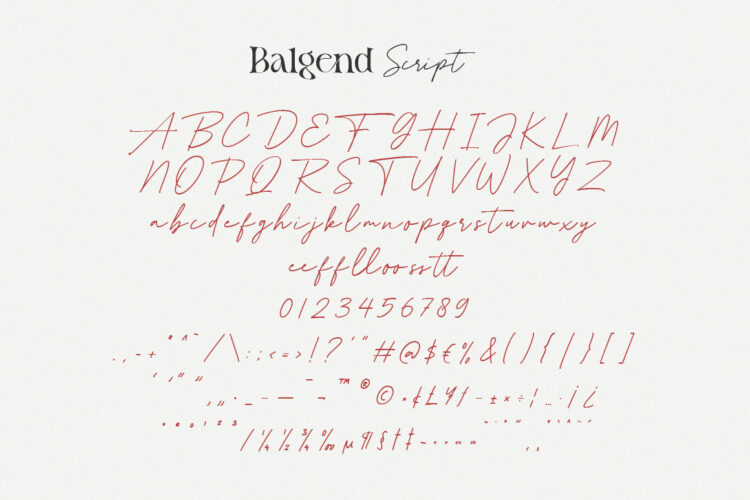 Balgend Script
ABCDEFGHIJKLM
NOPQRSTUVWXYZ
abcdefghijklmnopqrstuvwxy
eefflloosstt
0123456789
. , - + " ^ ~ / \ : ; < = > ! ? ' " # @ $ € % & ( ) { | } [ ]
‘ ‚ “ ” ‚ „ · _ – — ¯ ¬ ™ ® © • ¢ £ ¥ ƒ - ± × ÷ ¦ … · ¡ ¿
ª º 0 1 2 3 / ¼ ½ ¾ ‰ µ ¶ § † ‡ ~ ‹ › « »